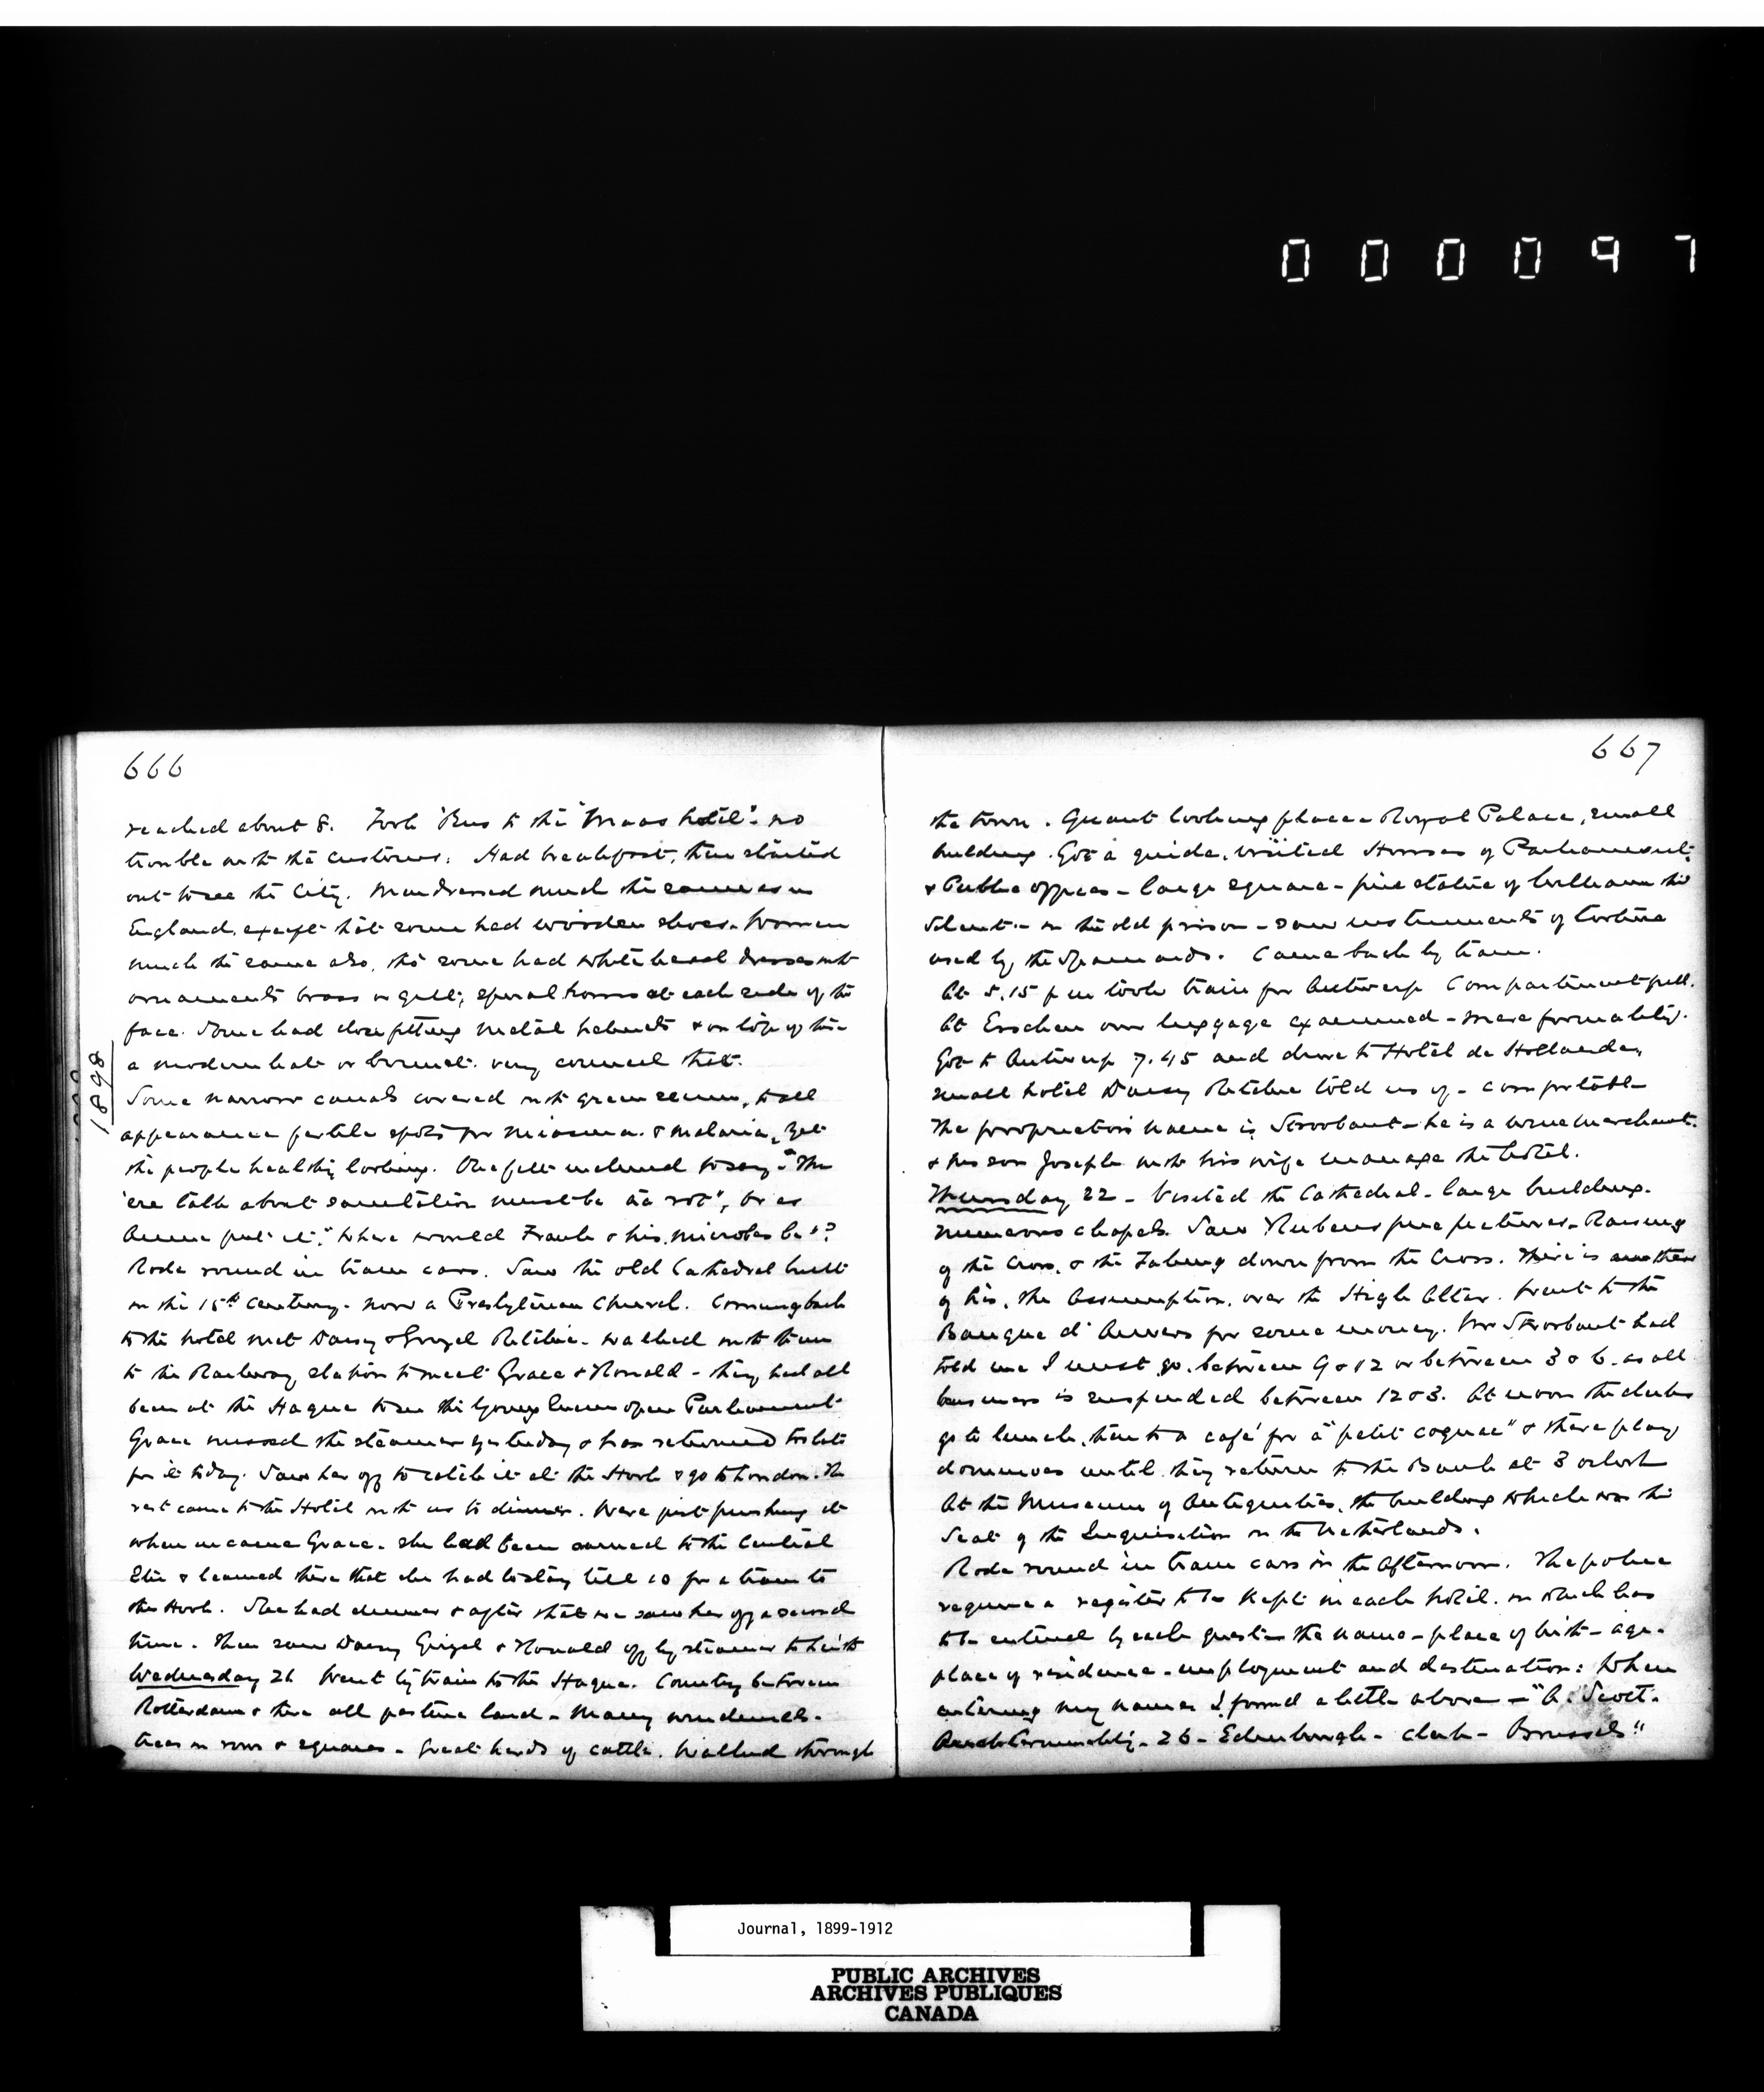 000097
666
reached about 8. Took 'Bus to the "Maas hotel". no
trouble with the customs. Had breakfast, then started
out to see the City. Men dressed much the same as in
England, except that some had wooden shoes. Women
much the same also, tho some had white head dresses with
ornaments brass or gilt, spiral horns at each side of the
face. Some had close fitting metal helmets & on top of this
a modern hat or bonnet. very comical that.
1898
Some narrow canals covered with green scum, to all
appearance fertile spots for miasma & malaria, yet
the people healthy looking. One felt inclined to say "This
'ere talk about sanitation must be rot", or as
put it, "where would Frank & his microbes be"?
Rode round in tram cars. Saw the old Cathedral built
in the 15th Century. now a Presbyterian Church. Coming back
to the hotel met Daisy & Grizel Ritchie. walked with them
to the Railway station to meet Grace & Ronald - they had all
been at the Hague to see the Young Queen open Parliament
Grace missed the steamer yesterday & has returned too late
for it today. Saw her off to catch it at the Hook & go to London. The
rest came to the Hotel with us to dinner. Were just finishing it
when in came Grace. She had been carried to the Central
Stn & learned there that she had to stay till 10 for a train to
the Hook. She had dinner & after that we saw her off a second
time. Then saw Daisy Grizel & Ronald off by steamer to Leith
Wednesday 21 Went by train to the Hague. Country between
Rotterdam & there all pasture land - Many windmills.
trees in rows & squares - great herds of cattle. Walked through
667
the town. Quaint looking place - Royal Palace, small
building. Got a guide. visited Houses of Parliament
& Public offices - large square - fine statue of William the
Silent - in the old prison - saw instruments of torture
used by the Spaniards. Came back by tram.
At 5.15 p m took train for Antwerp Compartment full.
At Esschen our luggage examined - mere formality.
Got to Antwerp 7.45 and drove to Hotel de Hollande,
small hotel Daisy Ritchie told us of - comfortable
The proprietors name is Stroobant - he is a wine merchant.
& his son Joseph with his wife manage the hotel.
Thursday 22 - Visited the Cathedral - large building.
numerous chapels. Saw Rubens fine pictures - Raising
of the Cross, & the Taking down from the Cross. There is another
of his, the Assumption, over the High Altar. Went to the
Banque d'Anvers for some money. Mr Stroobant had
told me I must go between 9 & 12 or between 3 & 6. as all
business is suspended between 12 & 3. At noon the clerks
go to lunch, then to a café for a "petit cognac" & there play
dominoes until they return to the Bank at 3 oclock
At the Museum of Antiquities, the building which was the
Seat of the Inquisition in the Netherlands.
Rode round in tram cars in the afternoon. The police
require a register to be kept in each hotel. in which has
to be entered by each guest - the name - place of birth - age -
place of residence - employment and destination: When
entering my name I found a little above - "A. Scott -
26 - Edinburgh - clerk - Brussels"
Journal, 1899-1912
PUBLIC ARCHIVES
ARCHIVES PUBLIQUES
CANADA